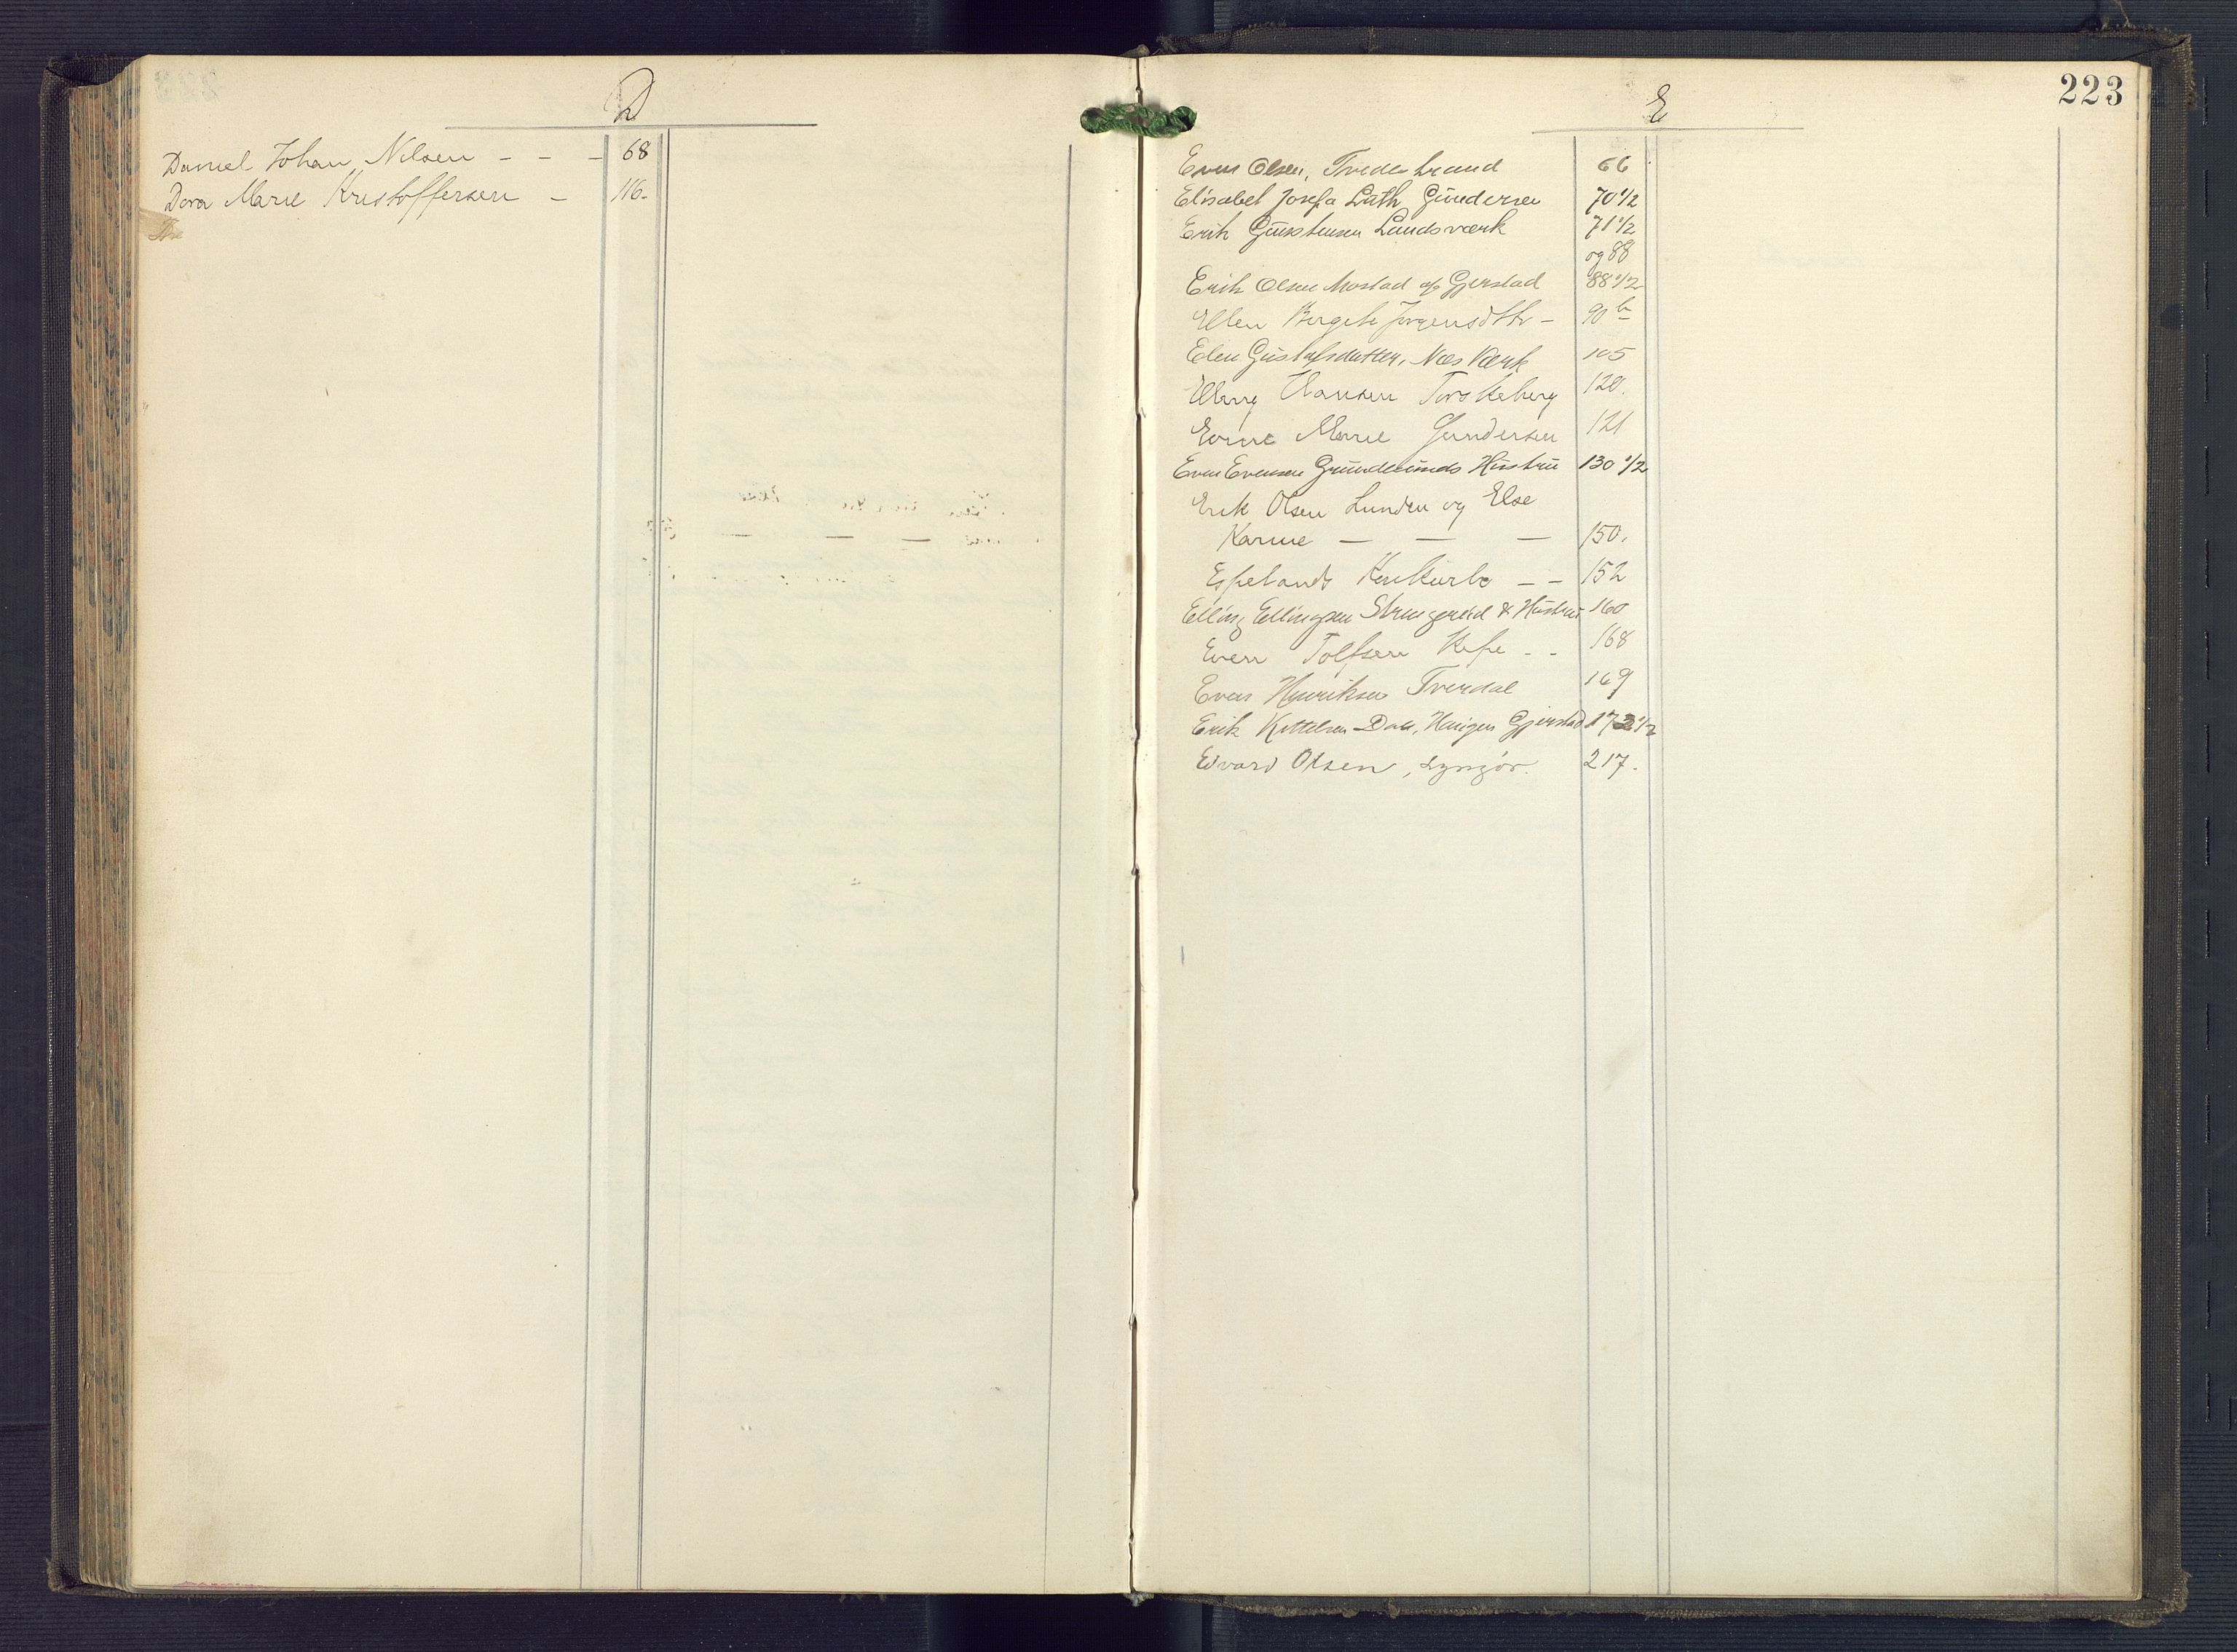 D
Daniel Johan Nilsen - - - 68
Dora Marie Kristoffersen - 116.
223
E
Even Olsen, Tvedestrand 66
Elisabet Josefa Luth Gundersen 70 1/2
Erik Gunstensen Landsværk 71 1/2
og 88
Erik Olsen Mostad af Gjerstad 88 1/2
Ellen Birgete Jørgensdttr - 90 b
Elen Gustafsdatter, Næs Værk 105
Elling Hansen Torskeberg 120.
Evine Marie Gundersen 121
Even Evensen Grundesunds Hustru 130 1/2
Erik Olsen Lunden og Else
Karine — — — 150.
Espelands - - 152
Elling Ellingsen Strengereid & Hustru 160
Even Tolfsen - - 168
Even Henriksen Tverdal 169
Erik Kittelsen Dale, Gjerstad 172 1/2
Edvard Olsen, Lyngør. 217.